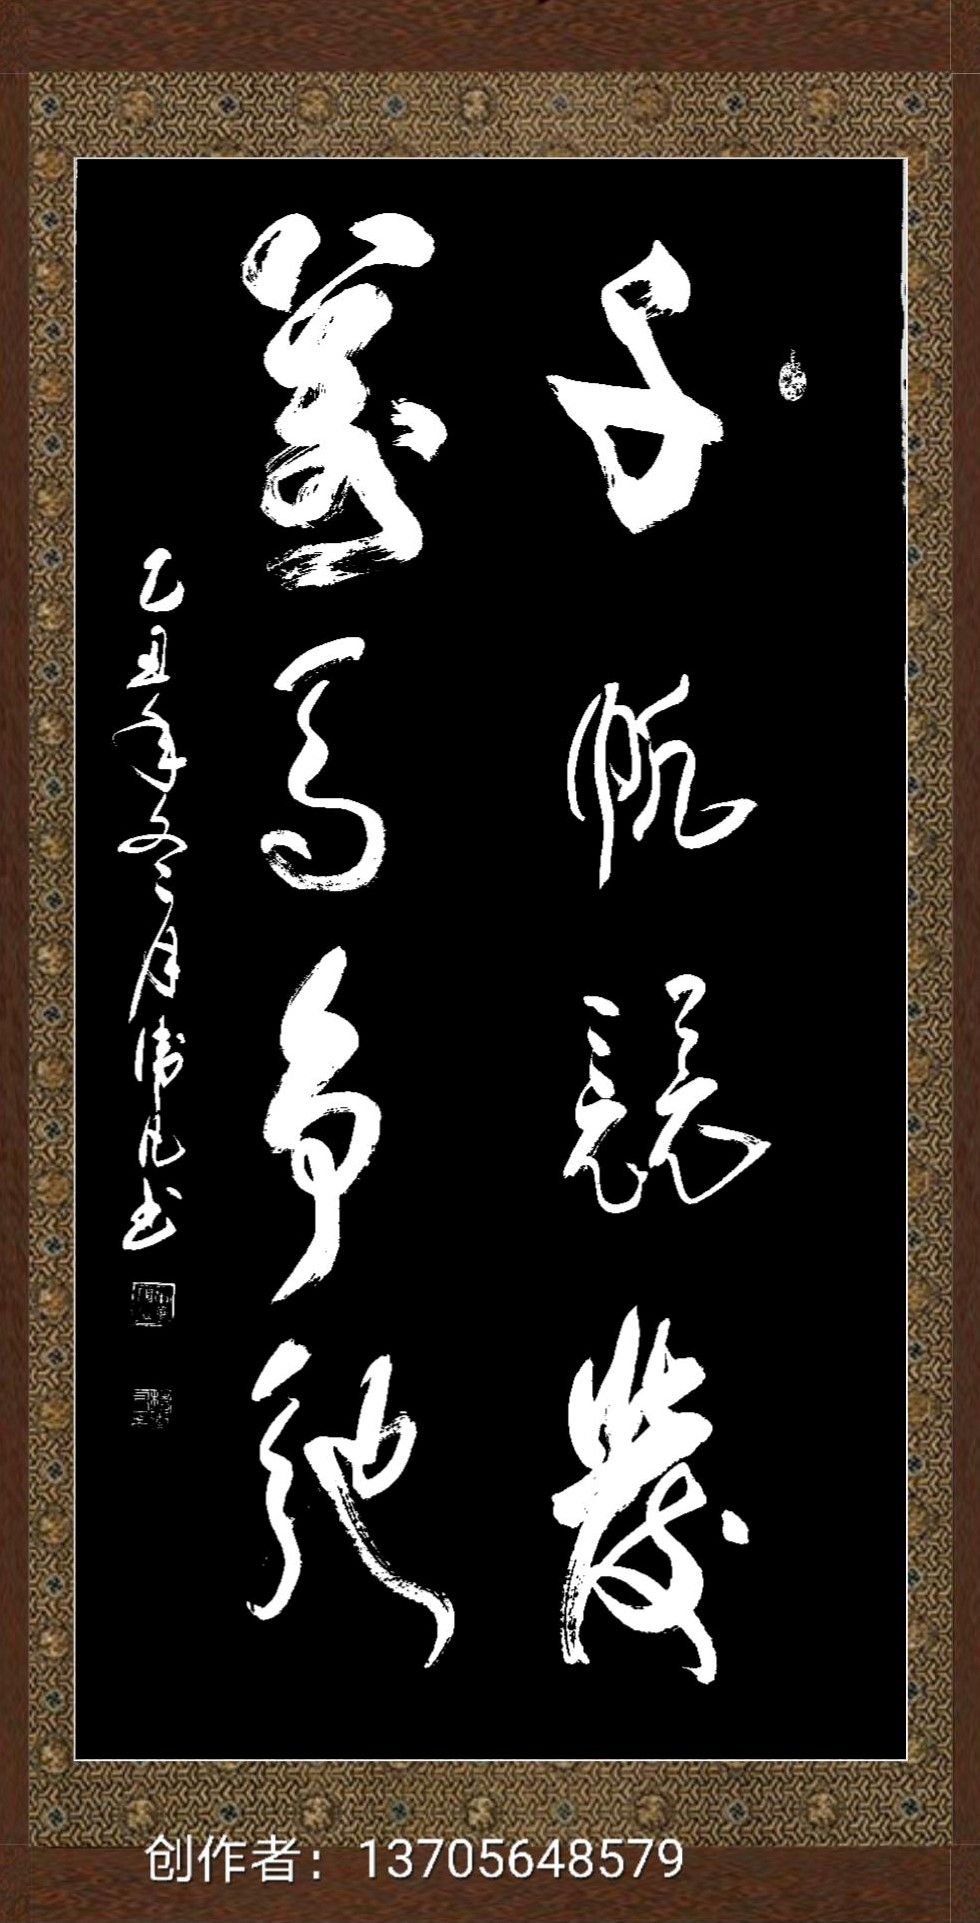 千帆競發
萬馬争馳
乙丑年冬月㳺凡书
创作者：13705648579